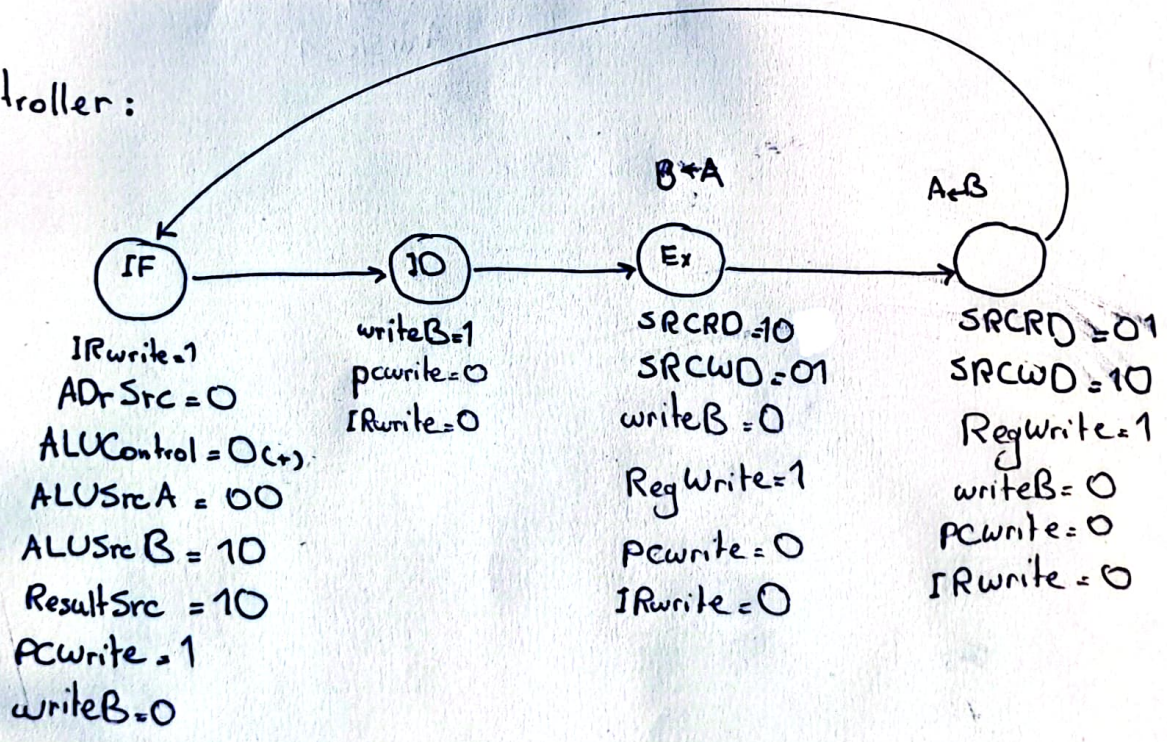 troller:
B←A
A←B
IF
ID
Ex
IRwrite=1
ADrSrc=0
ALUControl=0(+).
ALUSrcA=00
ALUSrcB=10
ResultSrc=10
PCwrite=1
writeB=0
writeB=1
pcwrite=0
IRwrite=0
SRCRD=10
SRCWD=01
writeB=0
RegWrite=1
Pcwrite=0
IRwrite=0
SRCRD=01
SRCWD=10
RegWrite=1
writeB=0
PCwrite=0
IRwrite=0